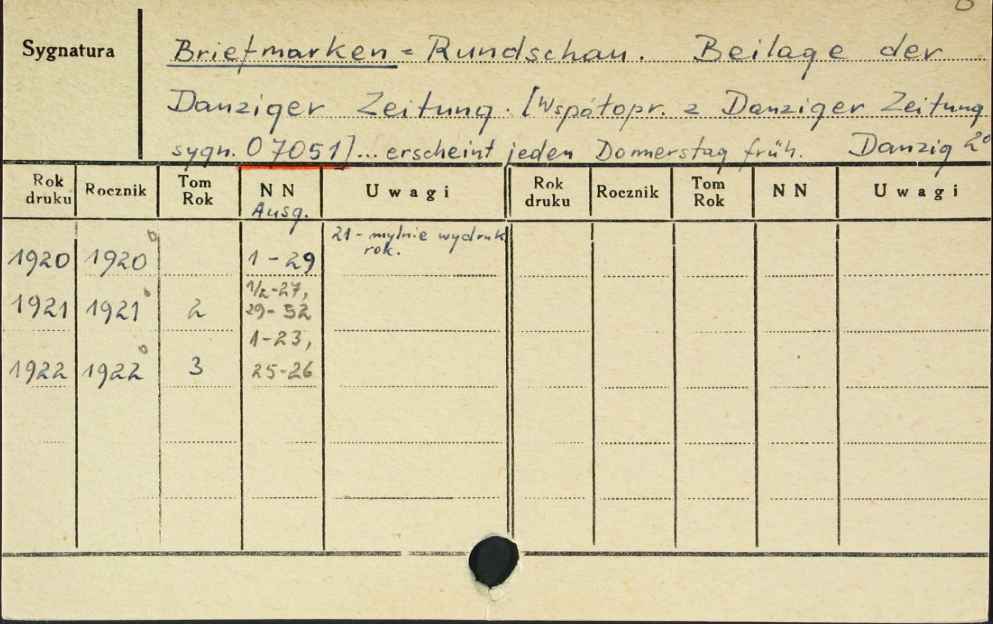 B
Sygnatura
Briefmarken = Rundschau. Beilage der
Danziger Zeitung. [Współopr. z Danziger Zeitung
sygn. 07051] ... erscheint jeden Donnerstag früh. Danzig 2°
Rok druku Rocznik Tom Rok NN Ausg. Uwagi Rok druku Rocznik Tom Rok NN Uwagi
21 - mylnie wydruk
rok.
1920 1920 1 - 29
1/2-27,
1921 1921 2 29-52
1-23,
1922 1922 3 25-26